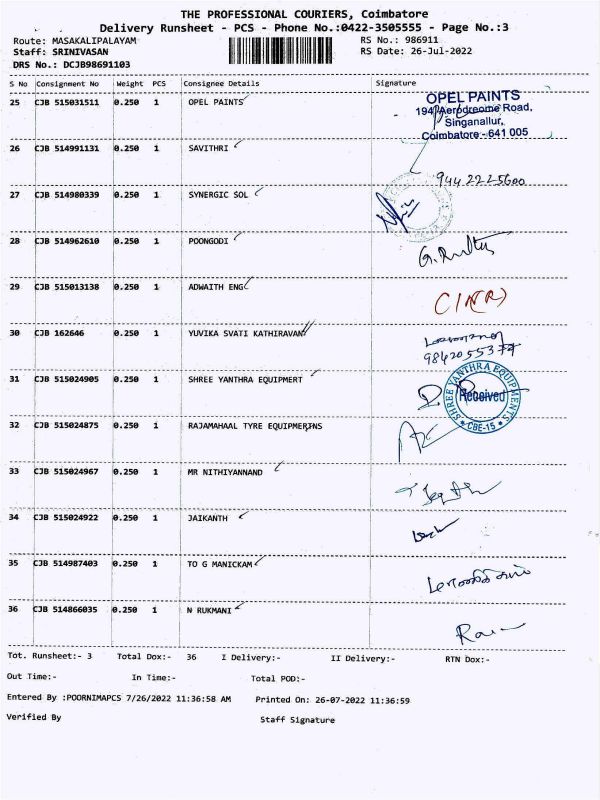 THE PROFESSIONAL COURIERS, Coimbatore
Delivery Runsheet - PCS - Phone No.:0422-3505555 - Page No.:3
Route: MASAKALIPALAYAM RS No.: 986911
Staff: SRINIVASAN RS Date: 26-Jul-2022
DRS No.: DCJB98691103
S No Consignment No Weight PCS Consignee Details Signature
25 CJB 515031511 0.250 1 OPEL PAINTS
OPEL PAINTS
194, Aerodreome Road,
Singanallur,
Coimbatore - 641 005
26 CJB 514991131 0.250 1 SAVITHRI
9442225600
27 CJB 514980339 0.250 1 SYNERGIC SOL
28 CJB 514962610 0.250 1 POONGODI
29 CJB 515013138 0.250 1 ADWAITH ENG
30 CJB 162646 0.250 1 YUVIKA SVATI KATHIRAVAN
31 CJB 515024905 0.250 1 SHREE YANTHRA EQUIPMERT
SHREE YANTHRA EQUIPMENTS
Received
CBE-15
32 CJB 515024875 0.250 1 RAJAMAHAAL TYRE EQUIPMERINS
33 CJB 515024967 0.250 1 MR NITHIYANNAND
34 CJB 515024922 0.250 1 JAIKANTH
35 CJB 514987403 0.250 1 TO G MANICKAM
36 CJB 514866035 0.250 1 N RUKMANI
Tot. Runsheet:- 3 Total Dox:- 36 I Delivery:- II Delivery:- RTN Dox:-
Out Time:- In Time:- Total POD:-
Entered By :POORNIMAPCS 7/26/2022 11:36:58 AM Printed On: 26-07-2022 11:36:59
Verified By Staff Signature